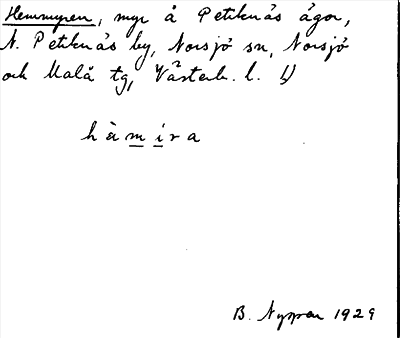 Hemmyren, myr å Petiknäs ägor,
N. Petiknäs by, Norsjö sn, Norsjö
och Malå tg, Västerb. l.
hämira
B. Nyman 1929